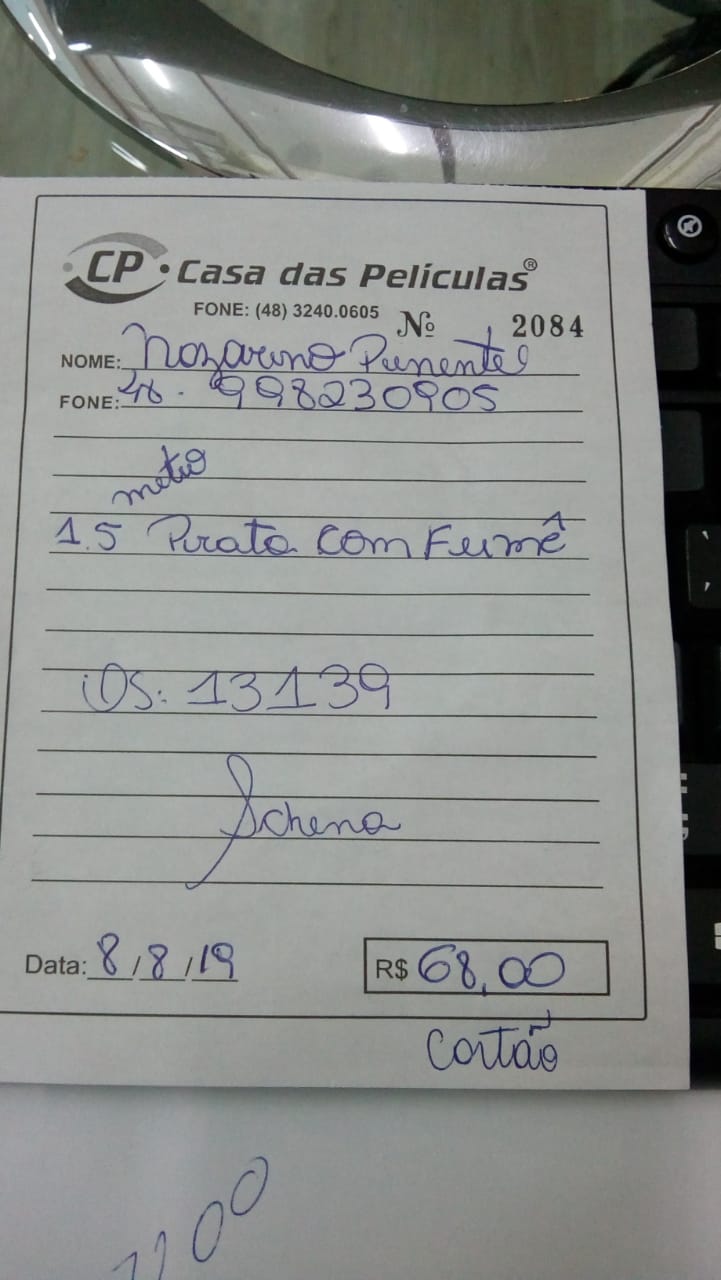 CP Casa das Películas®
FONE: (48) 3240.0605 Nº 2084
NOME: Nozarino Pimentel
FONE: 48. 998230905
metro
1.5 Prata com Fumê
OS: 13139
Schena
Data: 8/8/19 R$ 68,00
Cartão